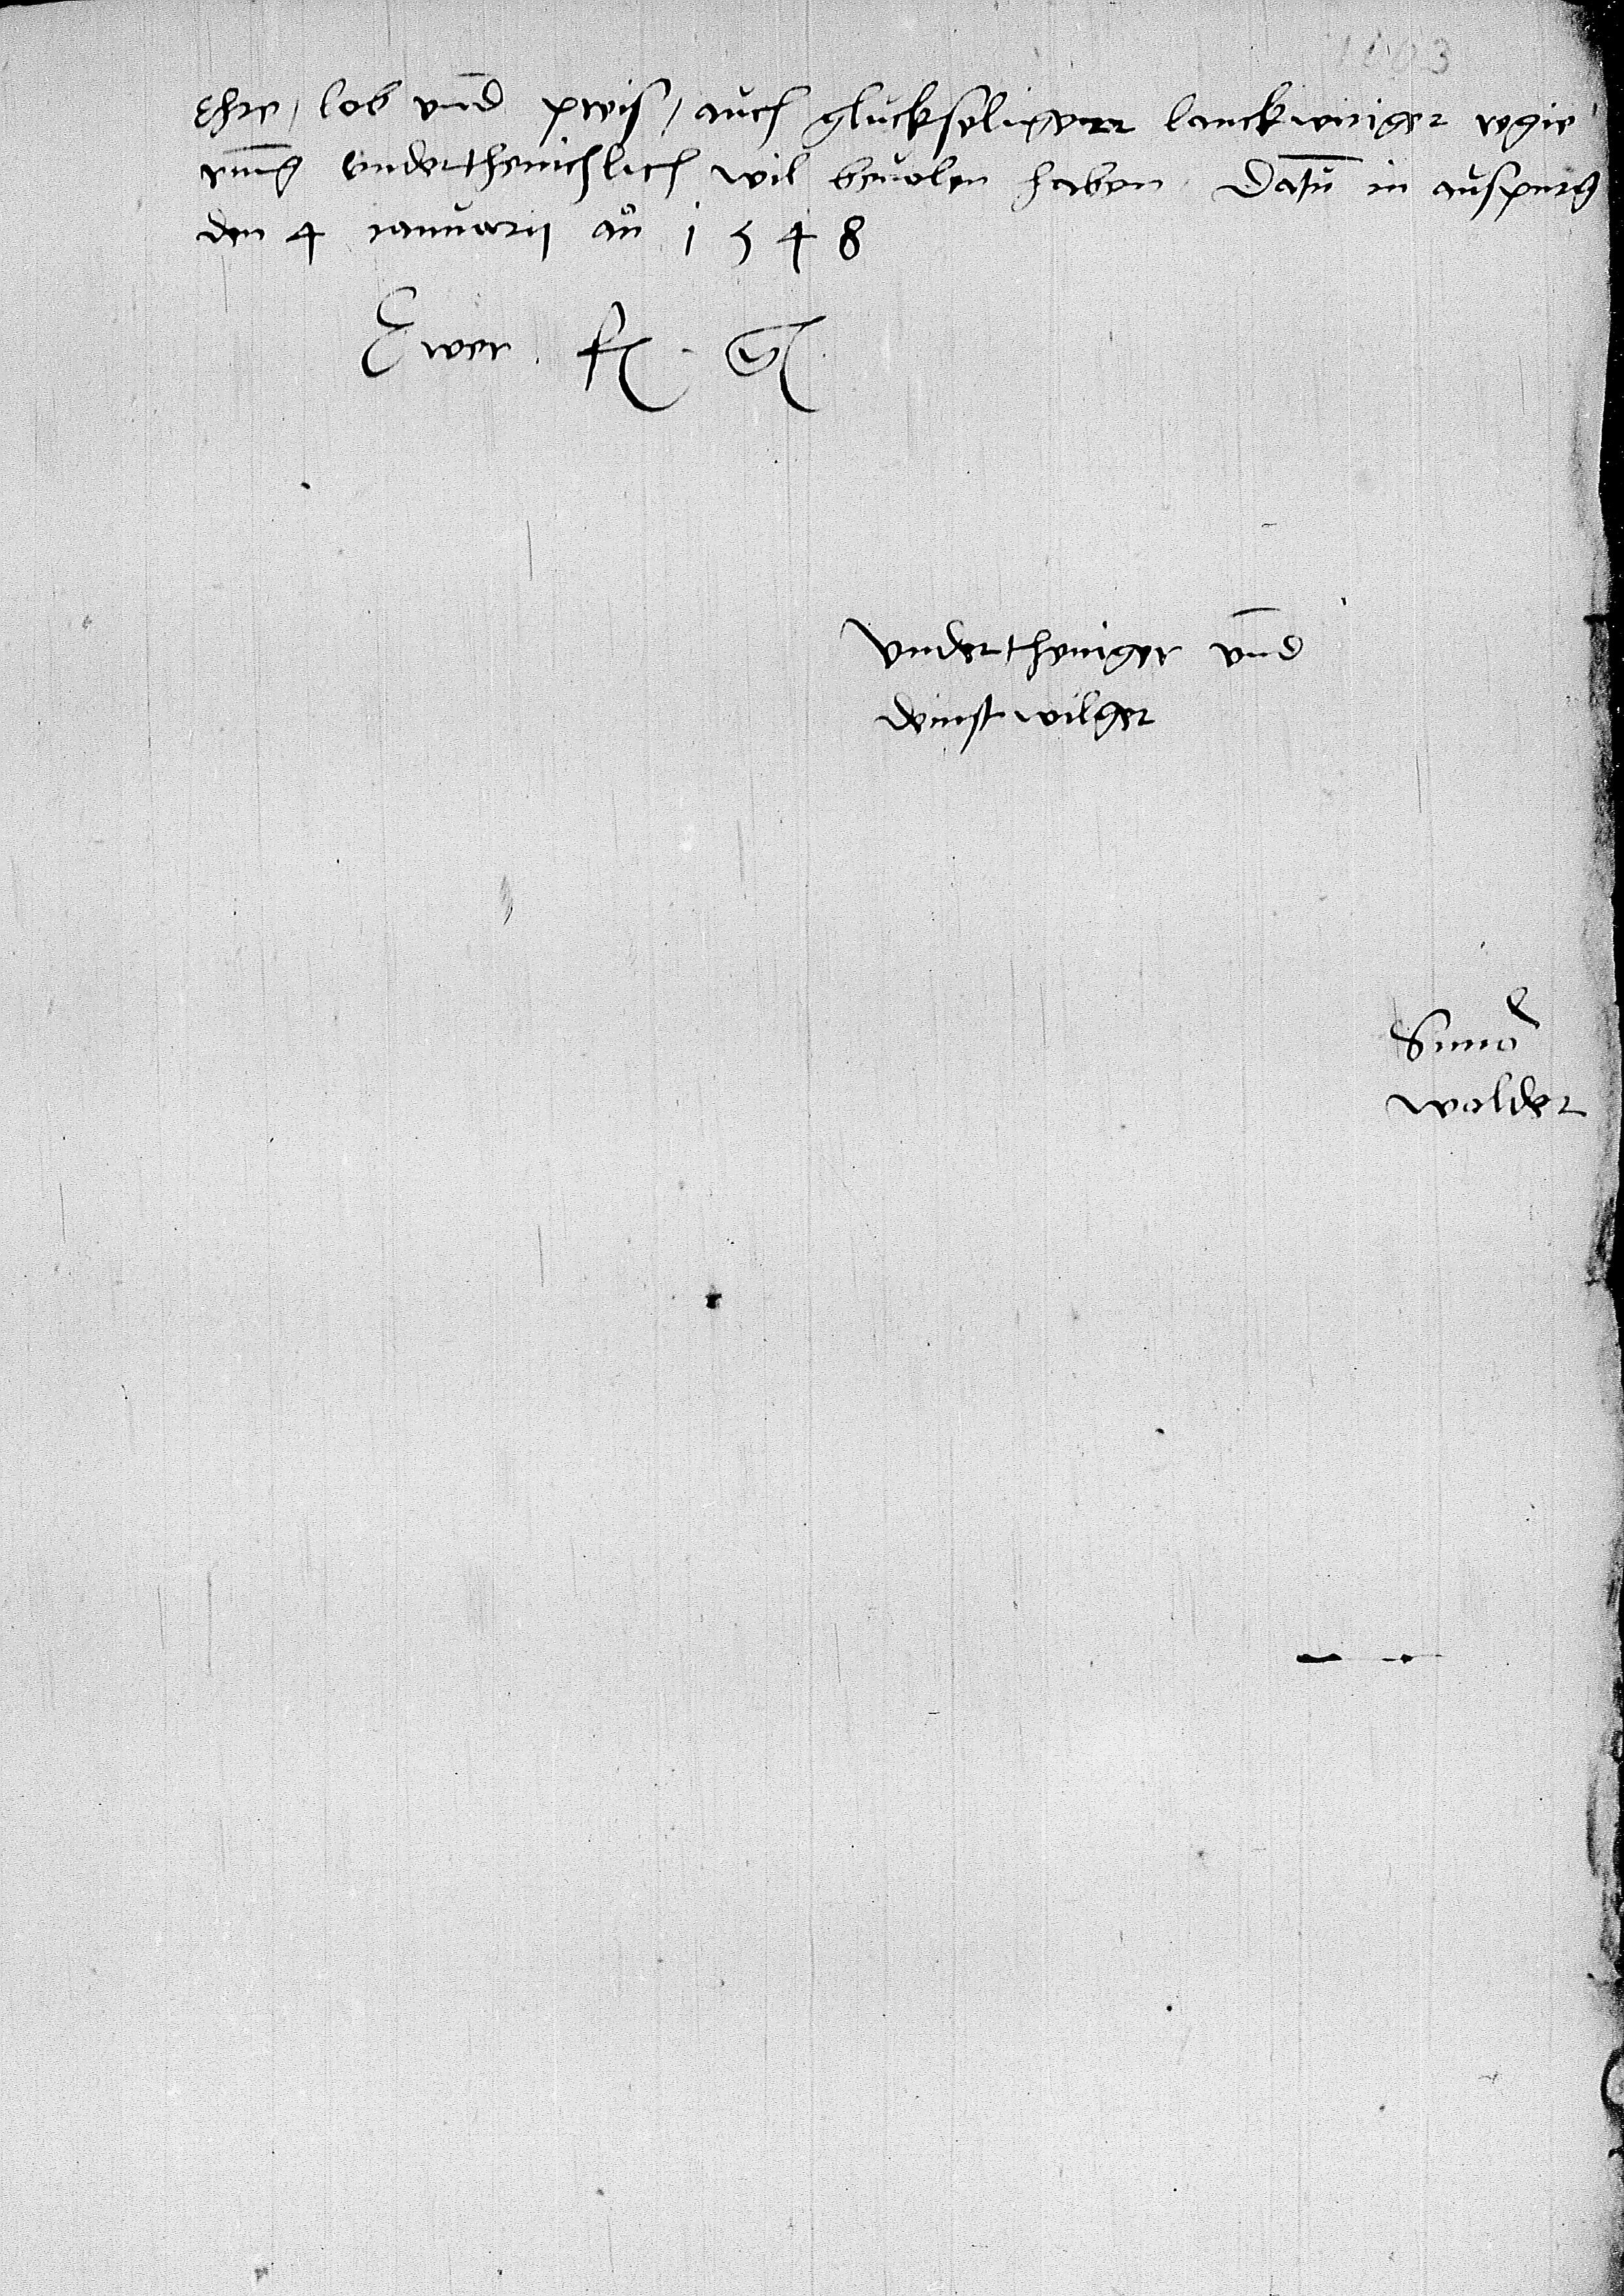 Ehre / lob vnd̄ preis / auch gluckseligerr lanckwiriger regie
runḡ vnderthenichlich wil beuolen haben Datū in auspurg
den 4 ianuarij aō 1548
Ewer. f. g.
Vndertheniger vnd̄
deinstwilger
Simō
wolder